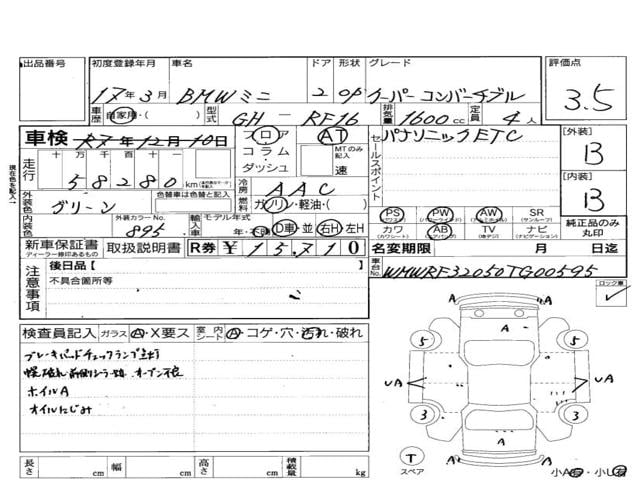 出品番号 初度登録年月 車名 ドア 形状 グレード 評価点
17年3月 BMWミニ 2 OP クーパーコンバーチブル 3.5
車歴 自家用・( ) 型式 GH-RF16 排気量 1600cc 定員 4人
車検 17年12月10日 フロア・コラム・ダッシュ AT MTのみ記入 速
セールスポイント パナソニックETC
[外装] B
[内装] B
走行 十万千百十 58280 km
冷房 AAC
外装色 グリーン 色替車は色替と記入
燃料 ガソリン・軽油・( )
PS PW AW SR(サンルーフ)
カワ(カワシート) AB(エアバッグ) TV ナビ(ナビゲーション)
純正品のみ丸印
内装色 外装カラーNo. 895 輸入車 モデル年式 年・不明 D車・並 右H・左H
新車保証書 ディーラー印あるもの 取扱説明書 R券 ¥15,710 名変期限 月 日迄
注意事項 後日品【 】
不具合箇所等
車台No. WMWRF32050TG00595
ロック車 ✓
検査員記入 ガラス A・X要ス 室内シート A・コゲ・穴・汚れ・破れ
ブレーキパッドチェックランプ点灯
ホイルA
オイルにじみ
A
A
5 5
UA A A UA
3 3
A
A
T
スペア
長さ cm 幅 cm 高さ cm 積載量 kg
小A有・小U有
現在色を記入